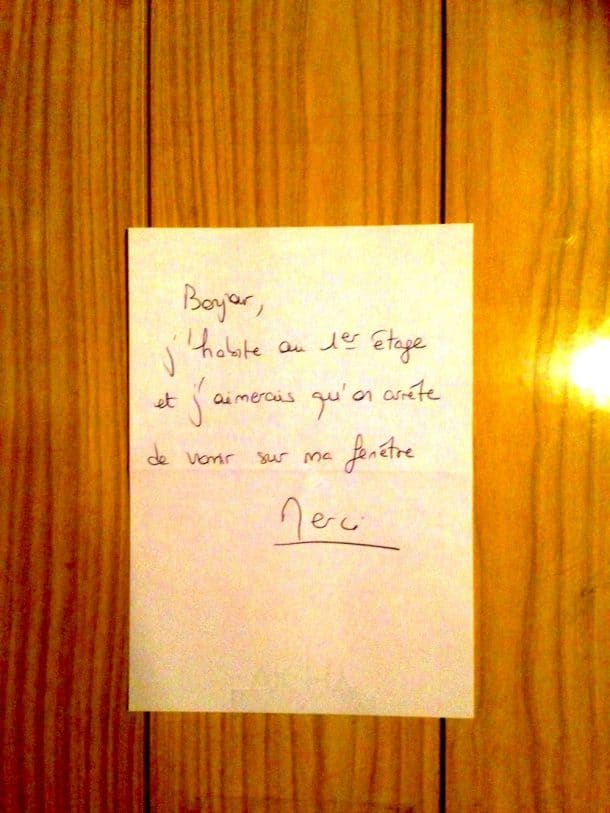 Bonjour,
j'habite au 1er étage
et j'aimerais qu'on arrête
de vomir sur ma fenêtre
Merci